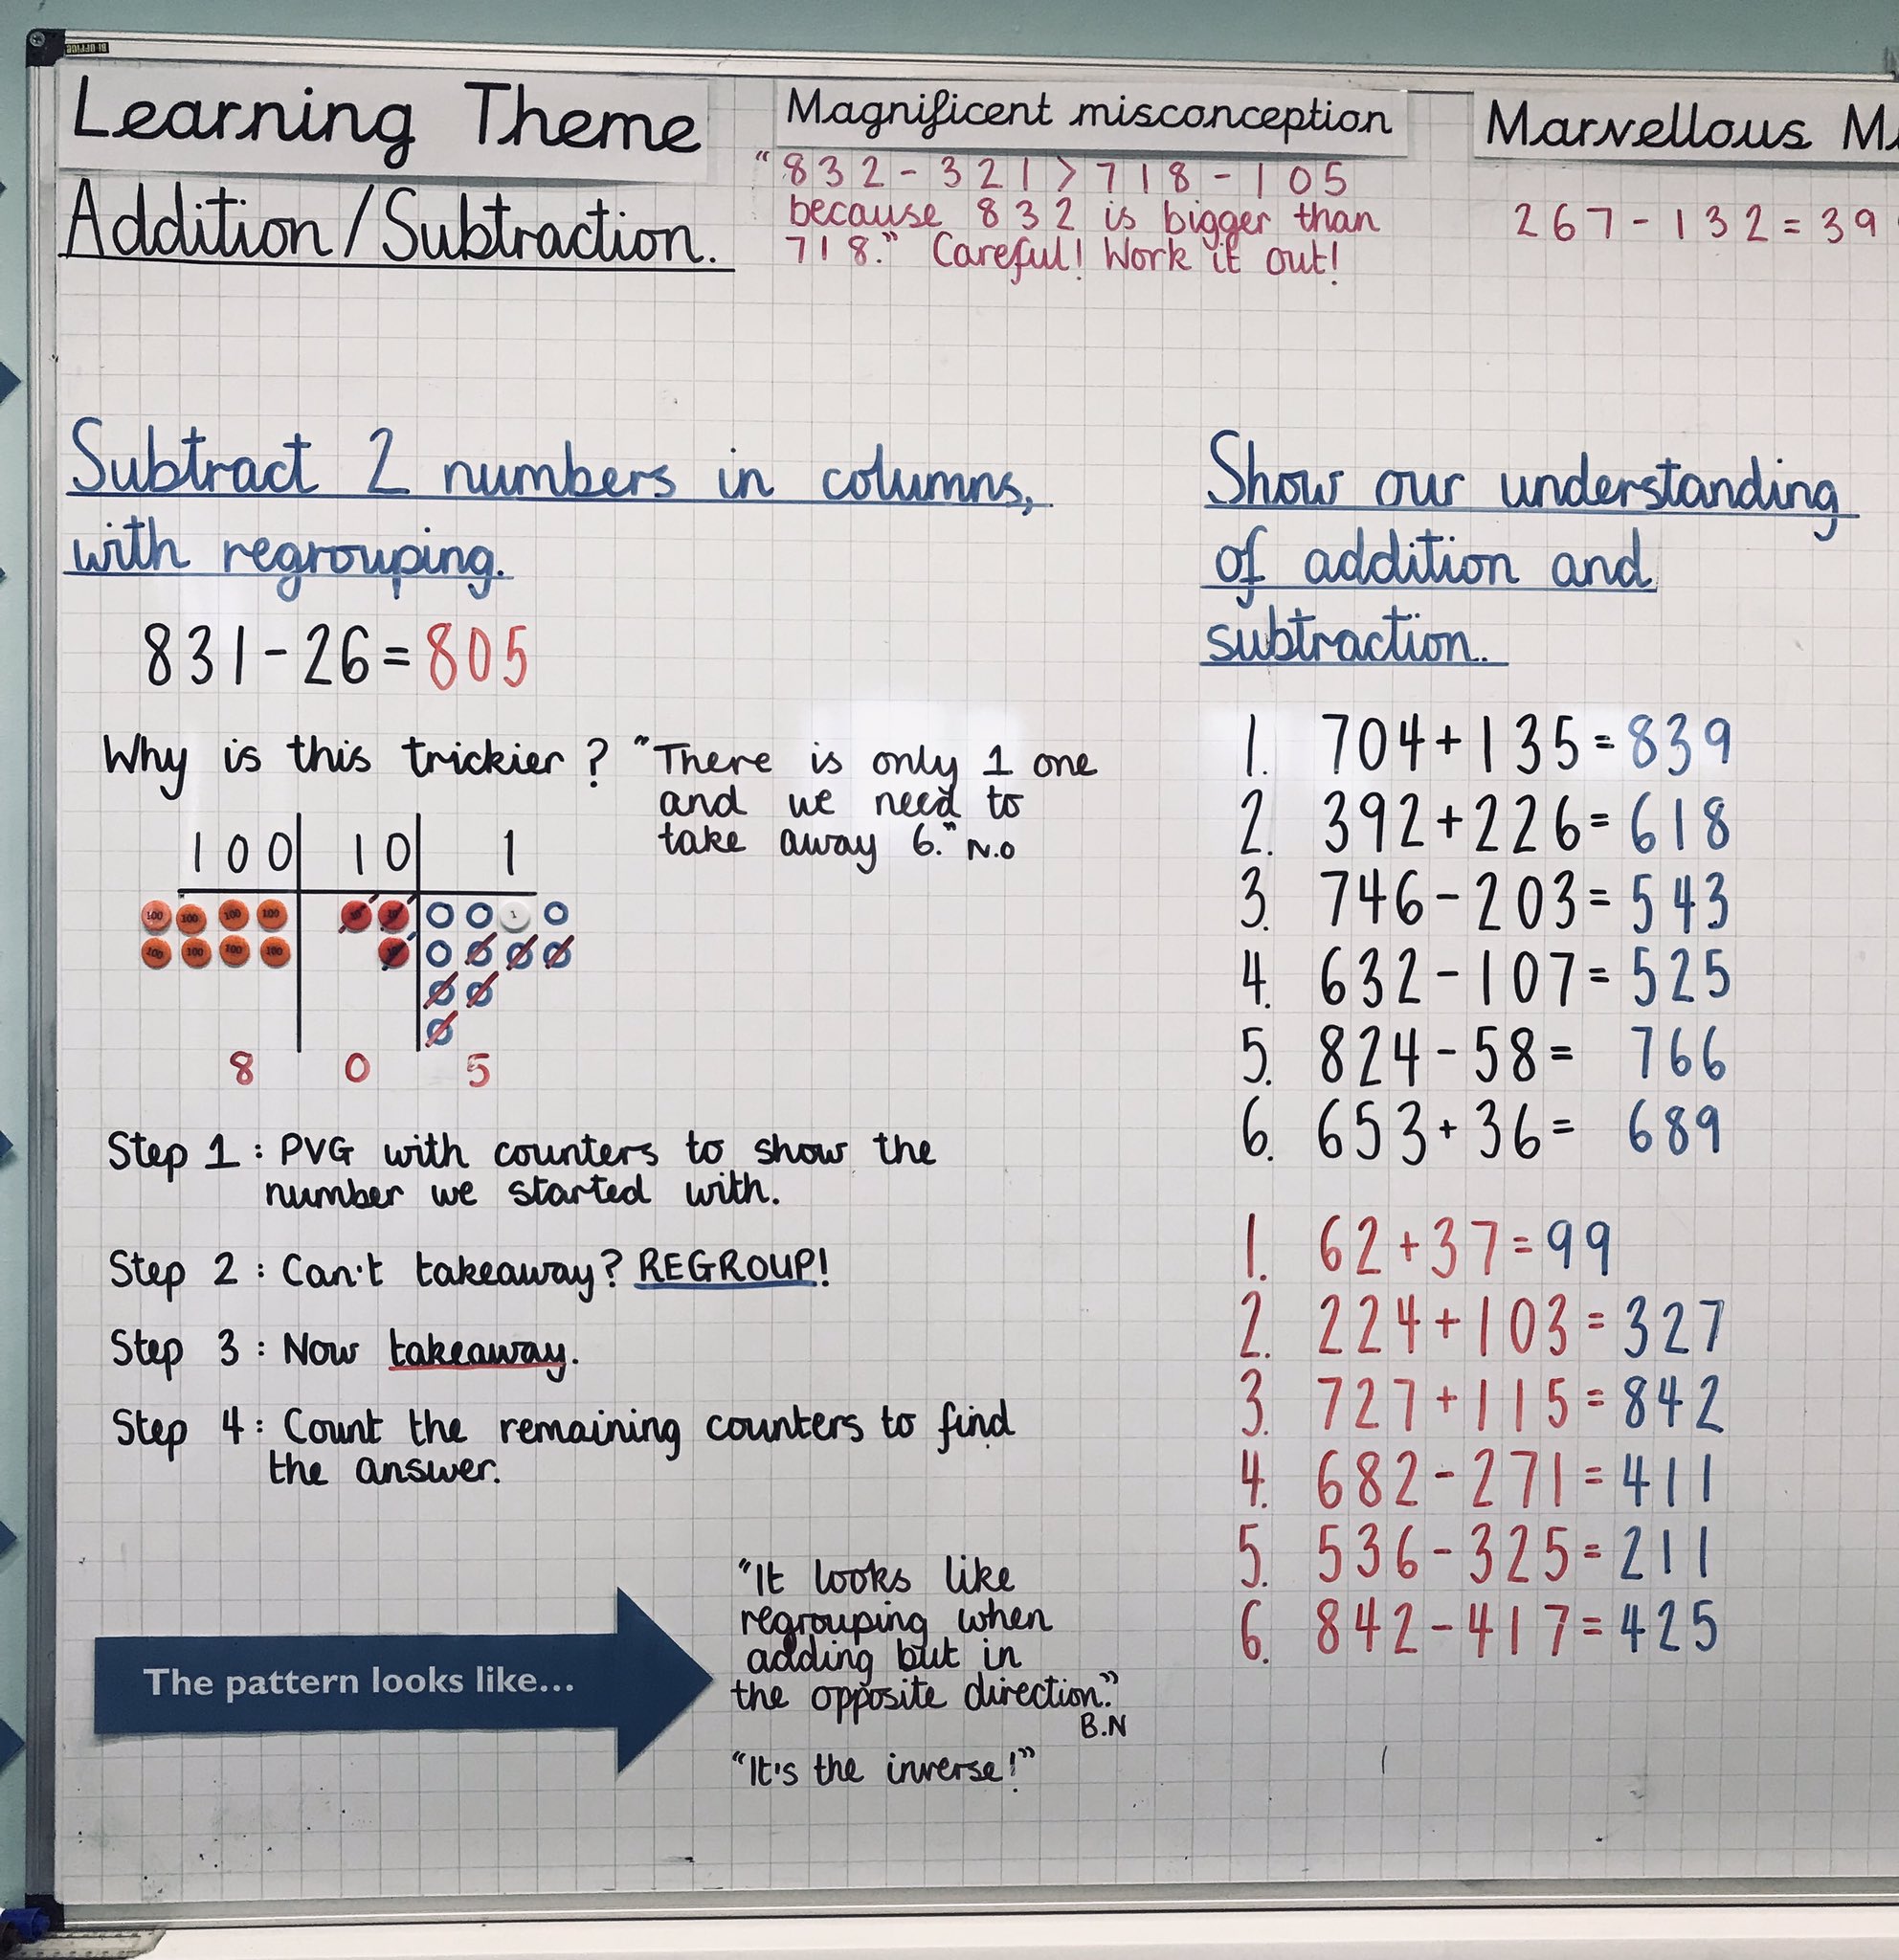 BI-OFFICE
Learning Theme
Addition/Subtraction.
Magnificent misconception
"832-321>718-105
because 832 is bigger than
718." Careful! Work it out!
Marvellous
267-132=39
Subtract 2 numbers in columns,
with regrouping.
831-26=805
Why is this trickier? "There is only 1 one
and we need to
take away 6." N.O
100 10 1
100 100 100 100 10 10 1
100 100 100 100 10
8 0 5
Step 1: PVG with counters to show the
number we started with.
Step 2: Can't takeaway? REGROUP!
Step 3: Now takeaway.
Step 4: Count the remaining counters to find
the answer.
The pattern looks like...
"It looks like
regrouping when
adding but in
the opposite direction."
B.N
"It's the inverse!"
Show our understanding
of addition and
subtraction.
1. 704+135=839
2. 392+226=618
3. 746-203=543
4. 632-107=525
5. 824-58= 766
6. 653+36= 689
1. 62+37=99
2. 224+103=327
3. 727+115=842
4. 682-271=411
5. 536-325=211
6. 842-417=425